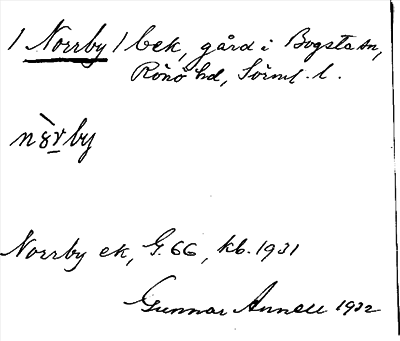 / Norrby / bek, gård i Bogsta sn,
Rönö hd, Sörml. l.
Norrby ek, G. 66, kb. 1931
Gunnar Annell 1932